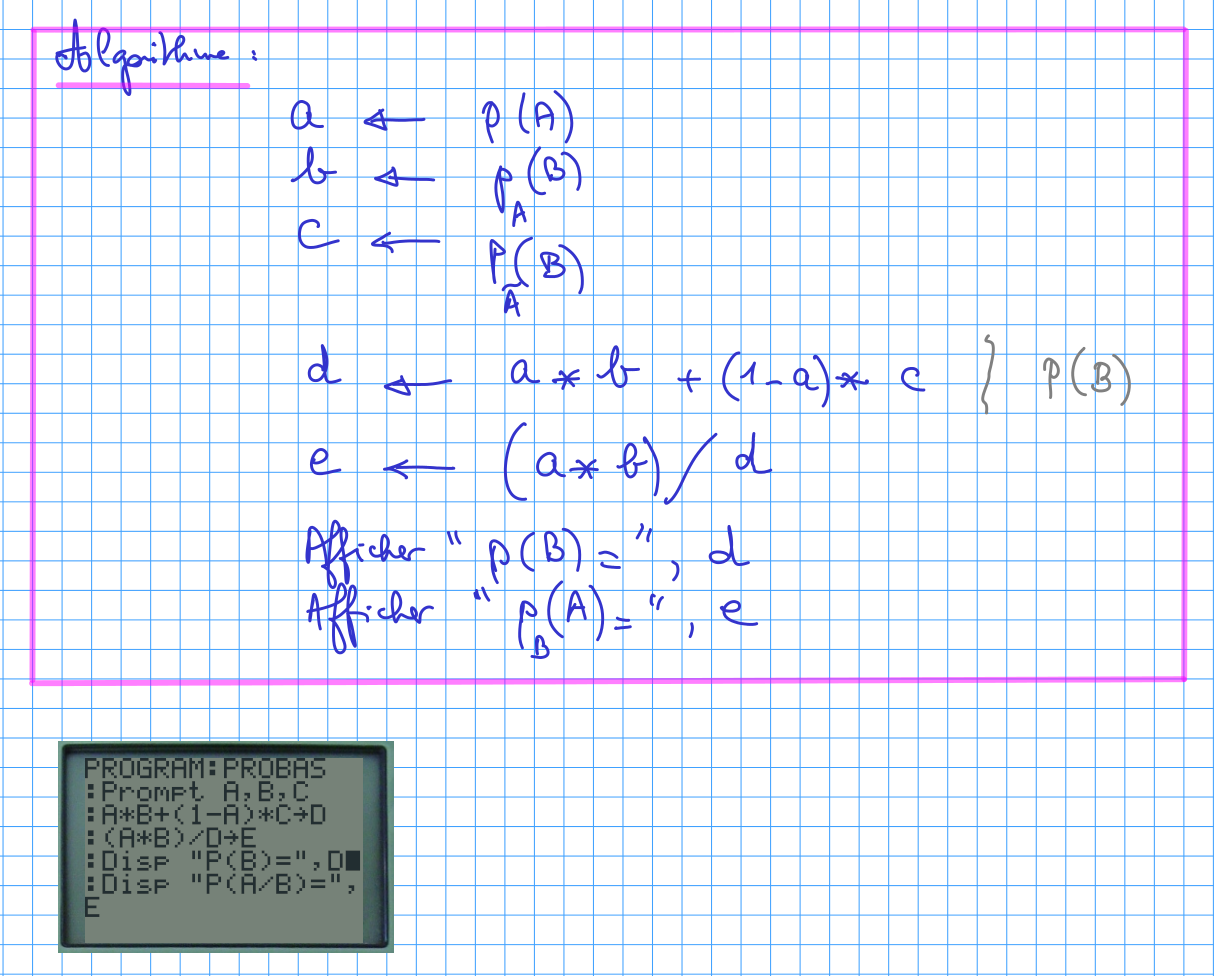 Algorithme :
a ← p(A)
b ← p_A(B)
c ← p_Ā(B)
d ← a * b + (1-a) * c } p(B)
e ← (a * b) / d
Afficher " p(B) = ", d
Afficher " p_B(A) = ", e
PROGRAM:PROBAS
:Prompt A,B,C
:A*B+(1-A)*C→D
:(A*B)/D→E
:Disp "P(B)=",D
:Disp "P(A/B)=",
E